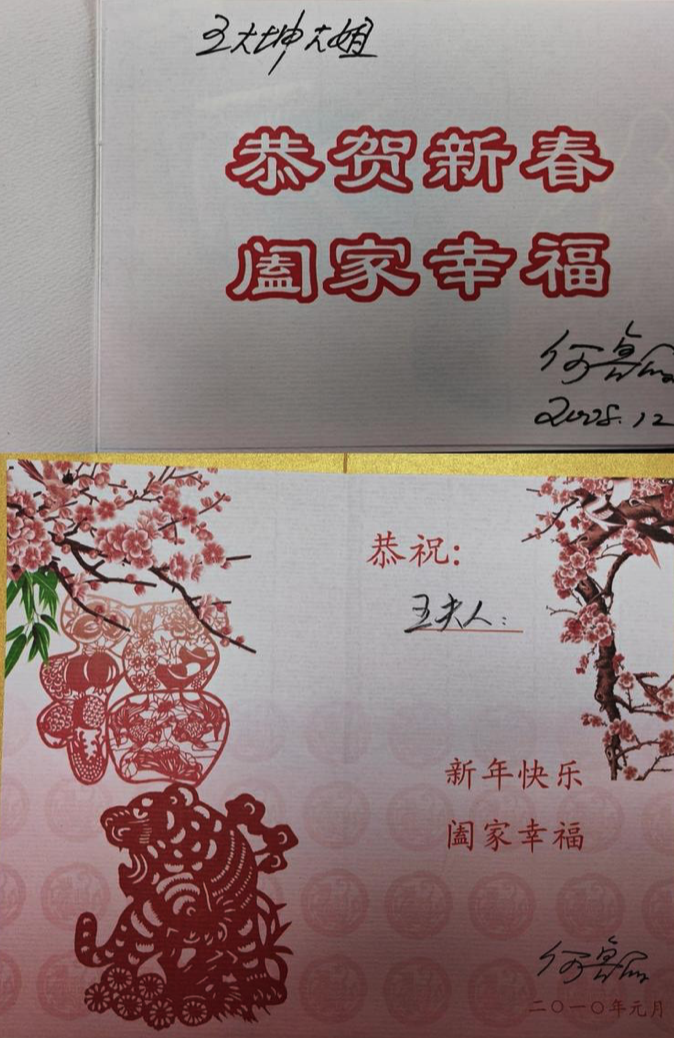 王大坤大姐
恭贺新春
阖家幸福
何鲁丽
2008.12
恭祝:
王夫人:
新年快乐
阖家幸福
何鲁丽
二〇一〇年元月